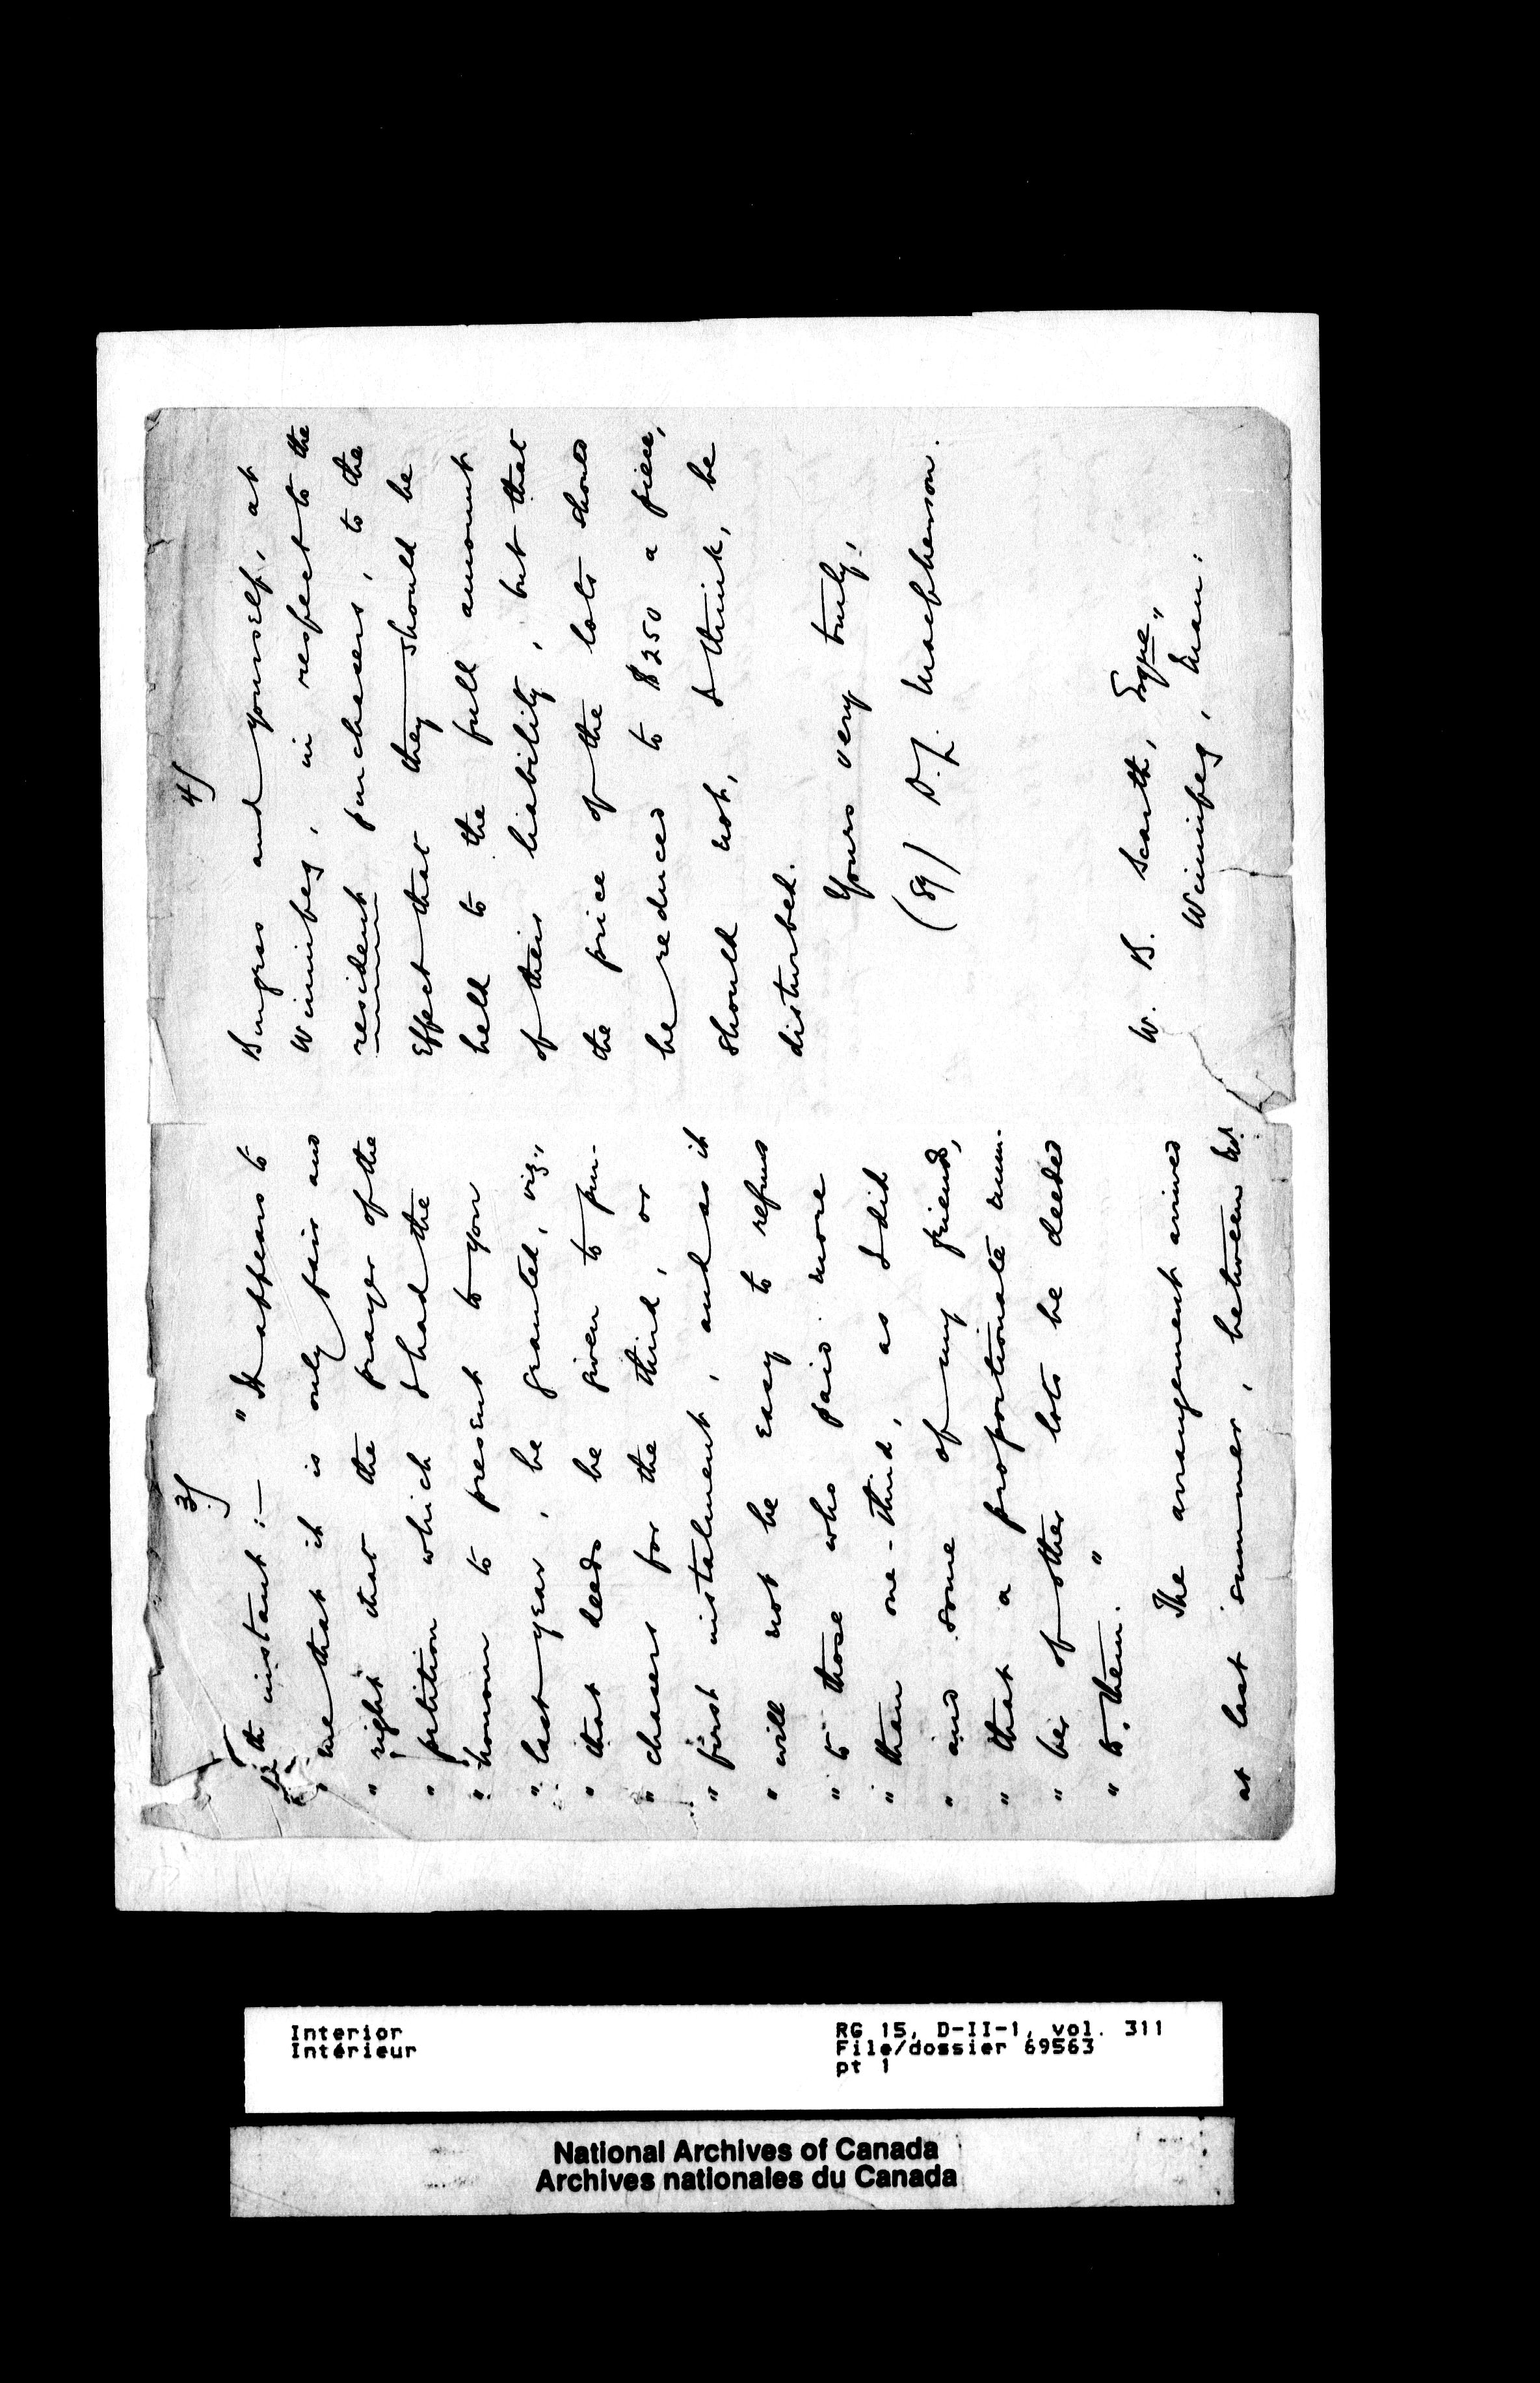 3/
th instant :— " It appears to
" me that it is only fair and
" right that the prayer of the
" petition which I had the
" honour to present to you
" last year, be granted, viz.,
" that deeds be given to pur-
" chasers for the third, or
" first instalment, and as it
" will not be easy to refund
" to those who paid more
" than one-third, as I did
" and some of my friends,
" that a proportionate num-
" ber of other lots be deeded
" to them. "
The arrangement arrived
at last summer, between Mr.
4/
Burgess and yourself, at
Winnipeg, in respect to the
resident purchasers, to the
effect that they should be
held to the full amount
of their liability, but that
the price of the lots should
be reduced to $250 a piece,
should not, I think, be
disturbed.
Yours very truly,
(Sg) D. L. Macpherson.
W. B. Scarth, Esqre.,
Winnipeg, Man.
Interior
Intérieur
RG 15, D-II-1, vol. 311
File/dossier 69563
pt 1
National Archives of Canada
Archives nationales du Canada